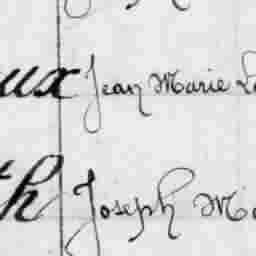 ux Jean Marie
th Joseph